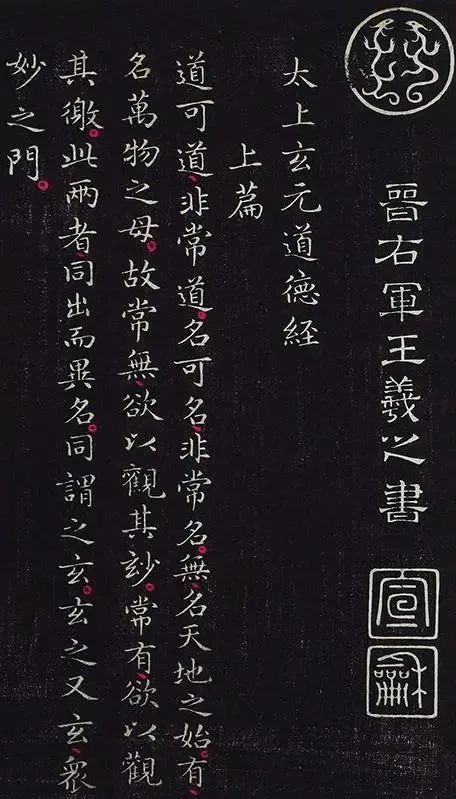 晉右軍王羲之書
宣
龢
太上玄元道德經
上篇
道可道、非常道。名可名、非常名。無、名天地之始。有、
名萬物之母。故常無、欲以觀其玅。常有、欲以觀
其徼。此兩者、同出而異名。同謂之玄。玄之又玄、眾
妙之門。